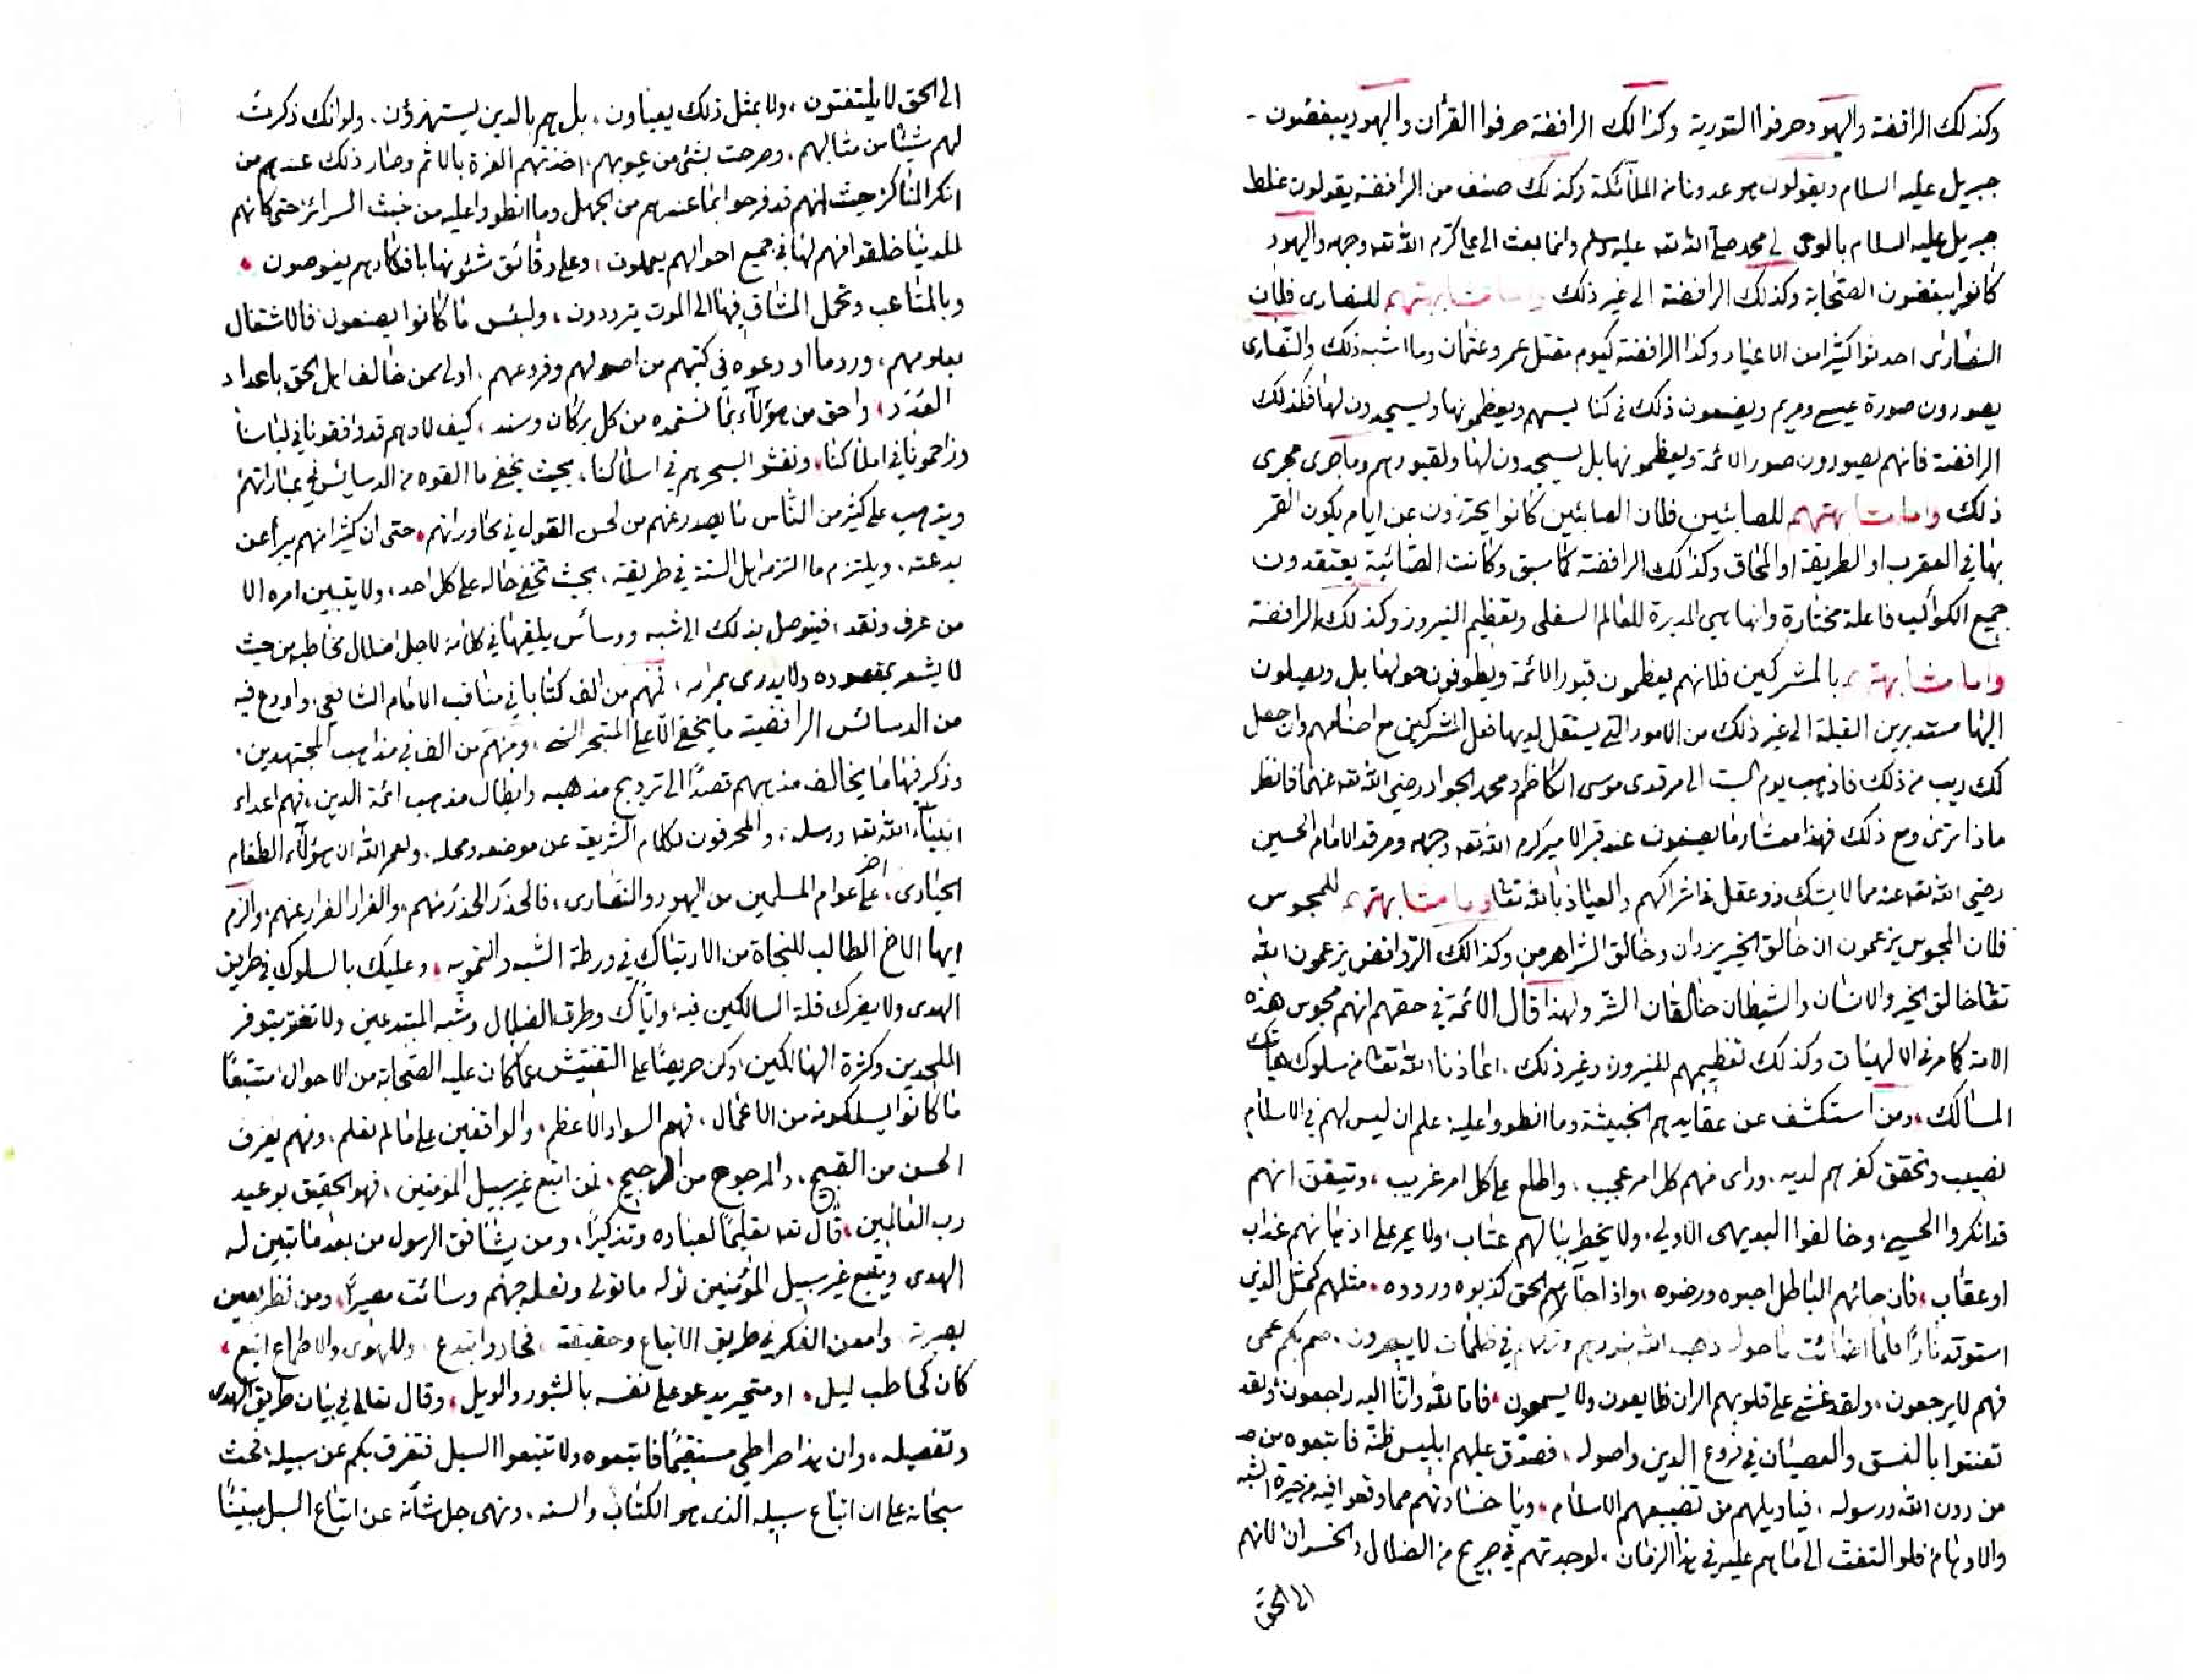 وكذلك الرافضة واليهود حرفوا التورية وكذالك الرافضة حرفوا القرأن واليهود يبغضون
جبريل عليه السلام ويقولون هو عدونا من الملائكة وكذلك صنف من الرافضة يقولون غلط
جبريل عليه السلام بالوحى لي محمد صلى الله تعه عليه وسلم وانما بعث الى على كرم الله تعه وجهه واليهود
كانوا يبغضون الصحابة وكذلك الرافضة الى غير ذلك واما مشابهتهم للنصارى فلان
النصارى احدثوا كثيرا من الاعياد وكذا الرافضة كيوم مقتل عمر وعثمان وما اشبه ذلك والنصارى
يصورون صورة عيسى ومريم ويضعون ذلك فى كنا يسهم ويعظمونها ويسجدون لها فكذلك
الرافضة فانهم يصورون صور الائمة ويعظمونها بل يسجدون لها ولقبورهم وما جرى مجرى
ذلك واما مشابهتهم للصابئين فلان الصابئين كانوا يحترزون عن ايام يكون القمر
بها في العقرب او الطريقة او المحاق وكذلك الرافضة كما سبق وكانت الصابئية يعتقدون
جميع الكواكب فاعلة مختارة وانها هي المدبرة للعالم السفلى وتعظيم النيروز وكذلك الرافضة
واما مشابهتهم بالمشركين فلانهم يعظمون قبور الائمة ويطوفون حولها بل ويصلون
اليها مستدبرين القبلة الى غير ذلك من الامور التي يستقل لديها فعل المشركين مع اصنامهم وان حصل
لك ريب من ذلك فاذهب يوم السبت الى مرقدى موسى الكاظم ومحمد الجواد رضي الله تعه عنهما فانظر
ماذا ترى ومع ذلك فهذا معشار ما يصنعون عند قبر الامير كرم الله تعه وجهه ومرقد الامام الحسين
رضي الله تعه عنه مما لا يشك ذو عقل في اشراكهم والعياذ بالله تعا واما مشابهتهم للمجوس
فلان المجوس يزعمون ان خالق الخير يزدان وخالق الشر اهرمن وكذالك الروافض يزعمون الله
تعا خالق الخير والانسان والشيطان خالقان الشر ولهذا قال الائمة في حقهم انهم مجوس هذه
الامة كما مر فى الالهيات وكذلك تعظيمهم للنيروز وغير ذلك. اعاذنا الله تعا من سلوك هاتك
المسالك. ومن استكشف عن عقايدهم الخبيثة وما انطووا عليه، علم ان ليس لهم في الاسلام
نصيب وتحقق كفرهم لديه. وراى منهم كل امر عجيب، واطلع على كل امر غريب، وتيقن انهم
قد انكروا الحسي، وخالفوا البديهى الاولي، ولا يخطر ببالهم عتاب، ولا يمر على اذهانهم عذاب
او عقاب، فان جائهم الباطل احبوه ورضوه، واذا جآءهم الحق كذبوه وردوه. مثلهم كمثل الذي
استوقد نارا فلما اضائت ما حوله ذهب الله بنورهم وتركهم في ظلمات لا يبصرون. صم بكم عمى
فهم لا يرجعون، ولقد غشي على قلوبهم الران فلا يعون ولا يسمعون، فانا لله وانا اليه راجعون، ولقد
تعنتوا بالفسق والعصيان في فروع الدين واصوله، فصدق عليهم ابليس ظنه فاتبعوه من
من دون الله ورسوله، فيا ويلهم من تضييعهم الاسلام. ويا خسارتهم مما وقعوا فيه من حيرة الشبه
والاوهام، فلو التفت الى ما هم عليه في هذا الزمان، لوجدتهم في صريح من الضلال والخسران لانهم
الى الحق
الى الحق لا يلتفتون، ولا بمثل ذلك يعباون، بل هم بالدين يستهزؤن. ولو انك ذكرت
لهم شيئا من مثالبهم، وصرحت بشئ من عيوبهم، اخذتهم العزة بالاثم وصار ذلك عندهم من
انكر المناكر حيث انهم قد فرحوا بما عندهم من الجهل وما انطووا عليه من خبث السرائر، حتى كانهم
للدنيا خلقوا فهم لها في جميع احوالهم يعملون، وعلى دقائق شئونها بافكارهم يغوصون.
وبالمتاعب وتحمل المشاق فيها الى الموت يترددون، ولبئس ما كانوا يصنعون فالاشتغال
بعلومهم، ورد ما اودعوه في كتبهم من اصولهم وفروعهم، اولى لمن خالف اهل الحق باعداد
العدد، واحق من هؤلاء بما نستمده من كل بركان وسند، كيف لا وهم قد وافقونا في لباسنا
وزاحمونا في املاكنا، ونفثوا السحرهم في اسلاكنا، بحيث يخفى ما القوه من الدسائس في عباراتهم
ويذهب على كثير من الناس ما يصدر عنهم من لحن القول في محاوراتهم، حتى ان كثيرا منهم يبرأ عن
بدعته، ويلتزم ما التزمه اهل السنة في طريقته، بحيث تخفى حاله على كل احد، ولا يتبين امره الا
من عرف ونقد، فيتوصل بذلك الى شبه ودسائس يلقيها في كلامه لاجل اضلال مخاطبه من حيث
لا يشعر بمقصوده ولا يدرى بمرامه، فمنهم من الف كتابا في مناقب الامام الشافعي، واودع فيه
من الدسائس الرافضية ما يخفى الا على المتبحر السني، ومنهم من الف في مذاهب المجتهدين.
وذكر فيها ما يخالف مذهبهم قصدًا الى ترويج مذهبه وابطال مذهب ائمة الدين، فهم اعداء
انبيآء الله تعه ورسله، والمحرفون لكلام الشريعة عن موضعه ومحله، ولعمر الله ان هؤلآء الطغام
الحيارى، اضر على عوام المسلمين من اليهود والنصارى، فالحذر الحذر منهم، والفرار الفرار عنهم، والزم
ايها الاخ الطالب للنجاة من الارتباك في ورطة الشبه والتمويه، وعليك بالسلوك في طريق
الهدى ولا يضرك قلة السالكين فيه، واياك وطرق الضلال وشبه المبتدعين ولا تغتر بتوفر
الملحدين وكثرة الهالكين، وكن حريصًا على التفتيش عما كان عليه الصحابة من الاحوال، متتبعًا
ما كانوا يسلكونه من الاعمال، فهم السواد الاعظم، والواقفين على ما لم نعلم، ومنهم يعرف
الحسن من القبيح، والمرجوح من الرجيح، فمن اتبع غير سبيل المؤمنين، فهو الحقيق بوعيد
رب العالمين، قال تعه تعليمًا لعباده وتذكيرًا، ومن يشاقق الرسول من بعد ما تبين له
الهدى ويتبع غير سبيل المؤمنين نوله ما تولى ونصله جهنم وسائت مصيرًا، ومن نظر بعين
بصيرته، وامعن الفكر في طريق الاتباع وحقيقته، فحاد وابتدع، وللهوى والاطماع اتبع،
كان كحاطب ليل، او متحير يدعو على نفسه بالثبور والويل، وقال تعالى في بيان طريق الهدى
وتفصيله، وان هذا صراطي مستقيمًا فاتبعوه ولا تتبعوا السبل فتفرق بكم عن سبيله، فحث
سبحانه على ان اتباع سبيله الذى هو الكتاب والسنه، ونهى جل شأنه عن اتباع السبل مبينًا